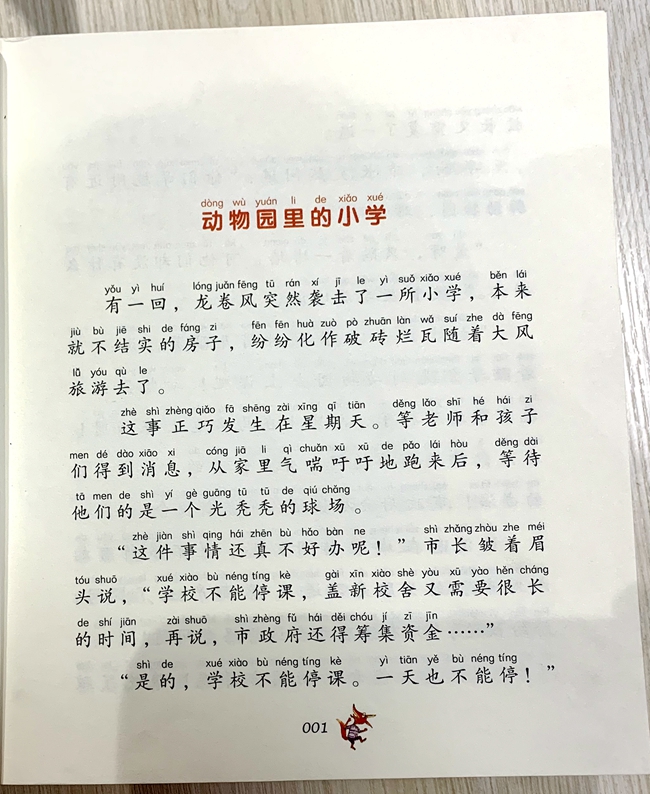 dòng wù yuán li de xiǎo xué
动物园里的小学
yǒu yì huí lóng juǎn fēng tū rán xí jī le yì suǒ xiǎo xué běn lái
有一回，龙卷风突然袭击了一所小学，本来
jiù bù jiē shi de fáng zi fēn fēn huà zuò pò zhuān làn wǎ suí zhe dà fēng
就不结实的房子，纷纷化作破砖烂瓦随着大风
lǚ yóu qù le
旅游去了。
zhè shì zhèng qiǎo fā shēng zài xīng qī tiān děng lǎo shī hé hái zi
这事正巧发生在星期天。等老师和孩子
men dé dào xiāo xi cóng jiā li qì chuǎn xū xū de pǎo lái hòu děng dài
们得到消息，从家里气喘吁吁地跑来后，等待
tā men de shì yí gè guāng tū tū de qiú chǎng
他们的是一个光秃秃的球场。
zhè jiàn shì qing hái zhēn bù hǎo bàn ne shì zhǎng zhòu zhe méi
“这件事情还真不好办呢！”市长皱着眉
tóu shuō xué xiào bù néng tíng kè gài xīn xiào shè yòu xū yào hěn cháng
头说，“学校不能停课，盖新校舍又需要很长
de shí jiān zài shuō shì zhèng fǔ hái děi chóu jí zī jīn
的时间，再说，市政府还得筹集资金……”
shì de xué xiào bù néng tíng kè yì tiān yě bù néng tíng
“是的，学校不能停课。一天也不能停！”
001